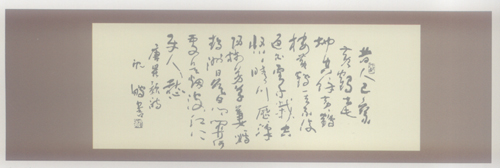 昔人已乘
黄鹤去此
地空余黄鹤
楼黄鹤一去不復
返白雲千載空
悠悠晴川歷歷漢
陽樹芳草萋萋鸚
鵡洲日暮鄉關何
處是煙波江上
使人愁
唐崔顥詩
沈鹏書